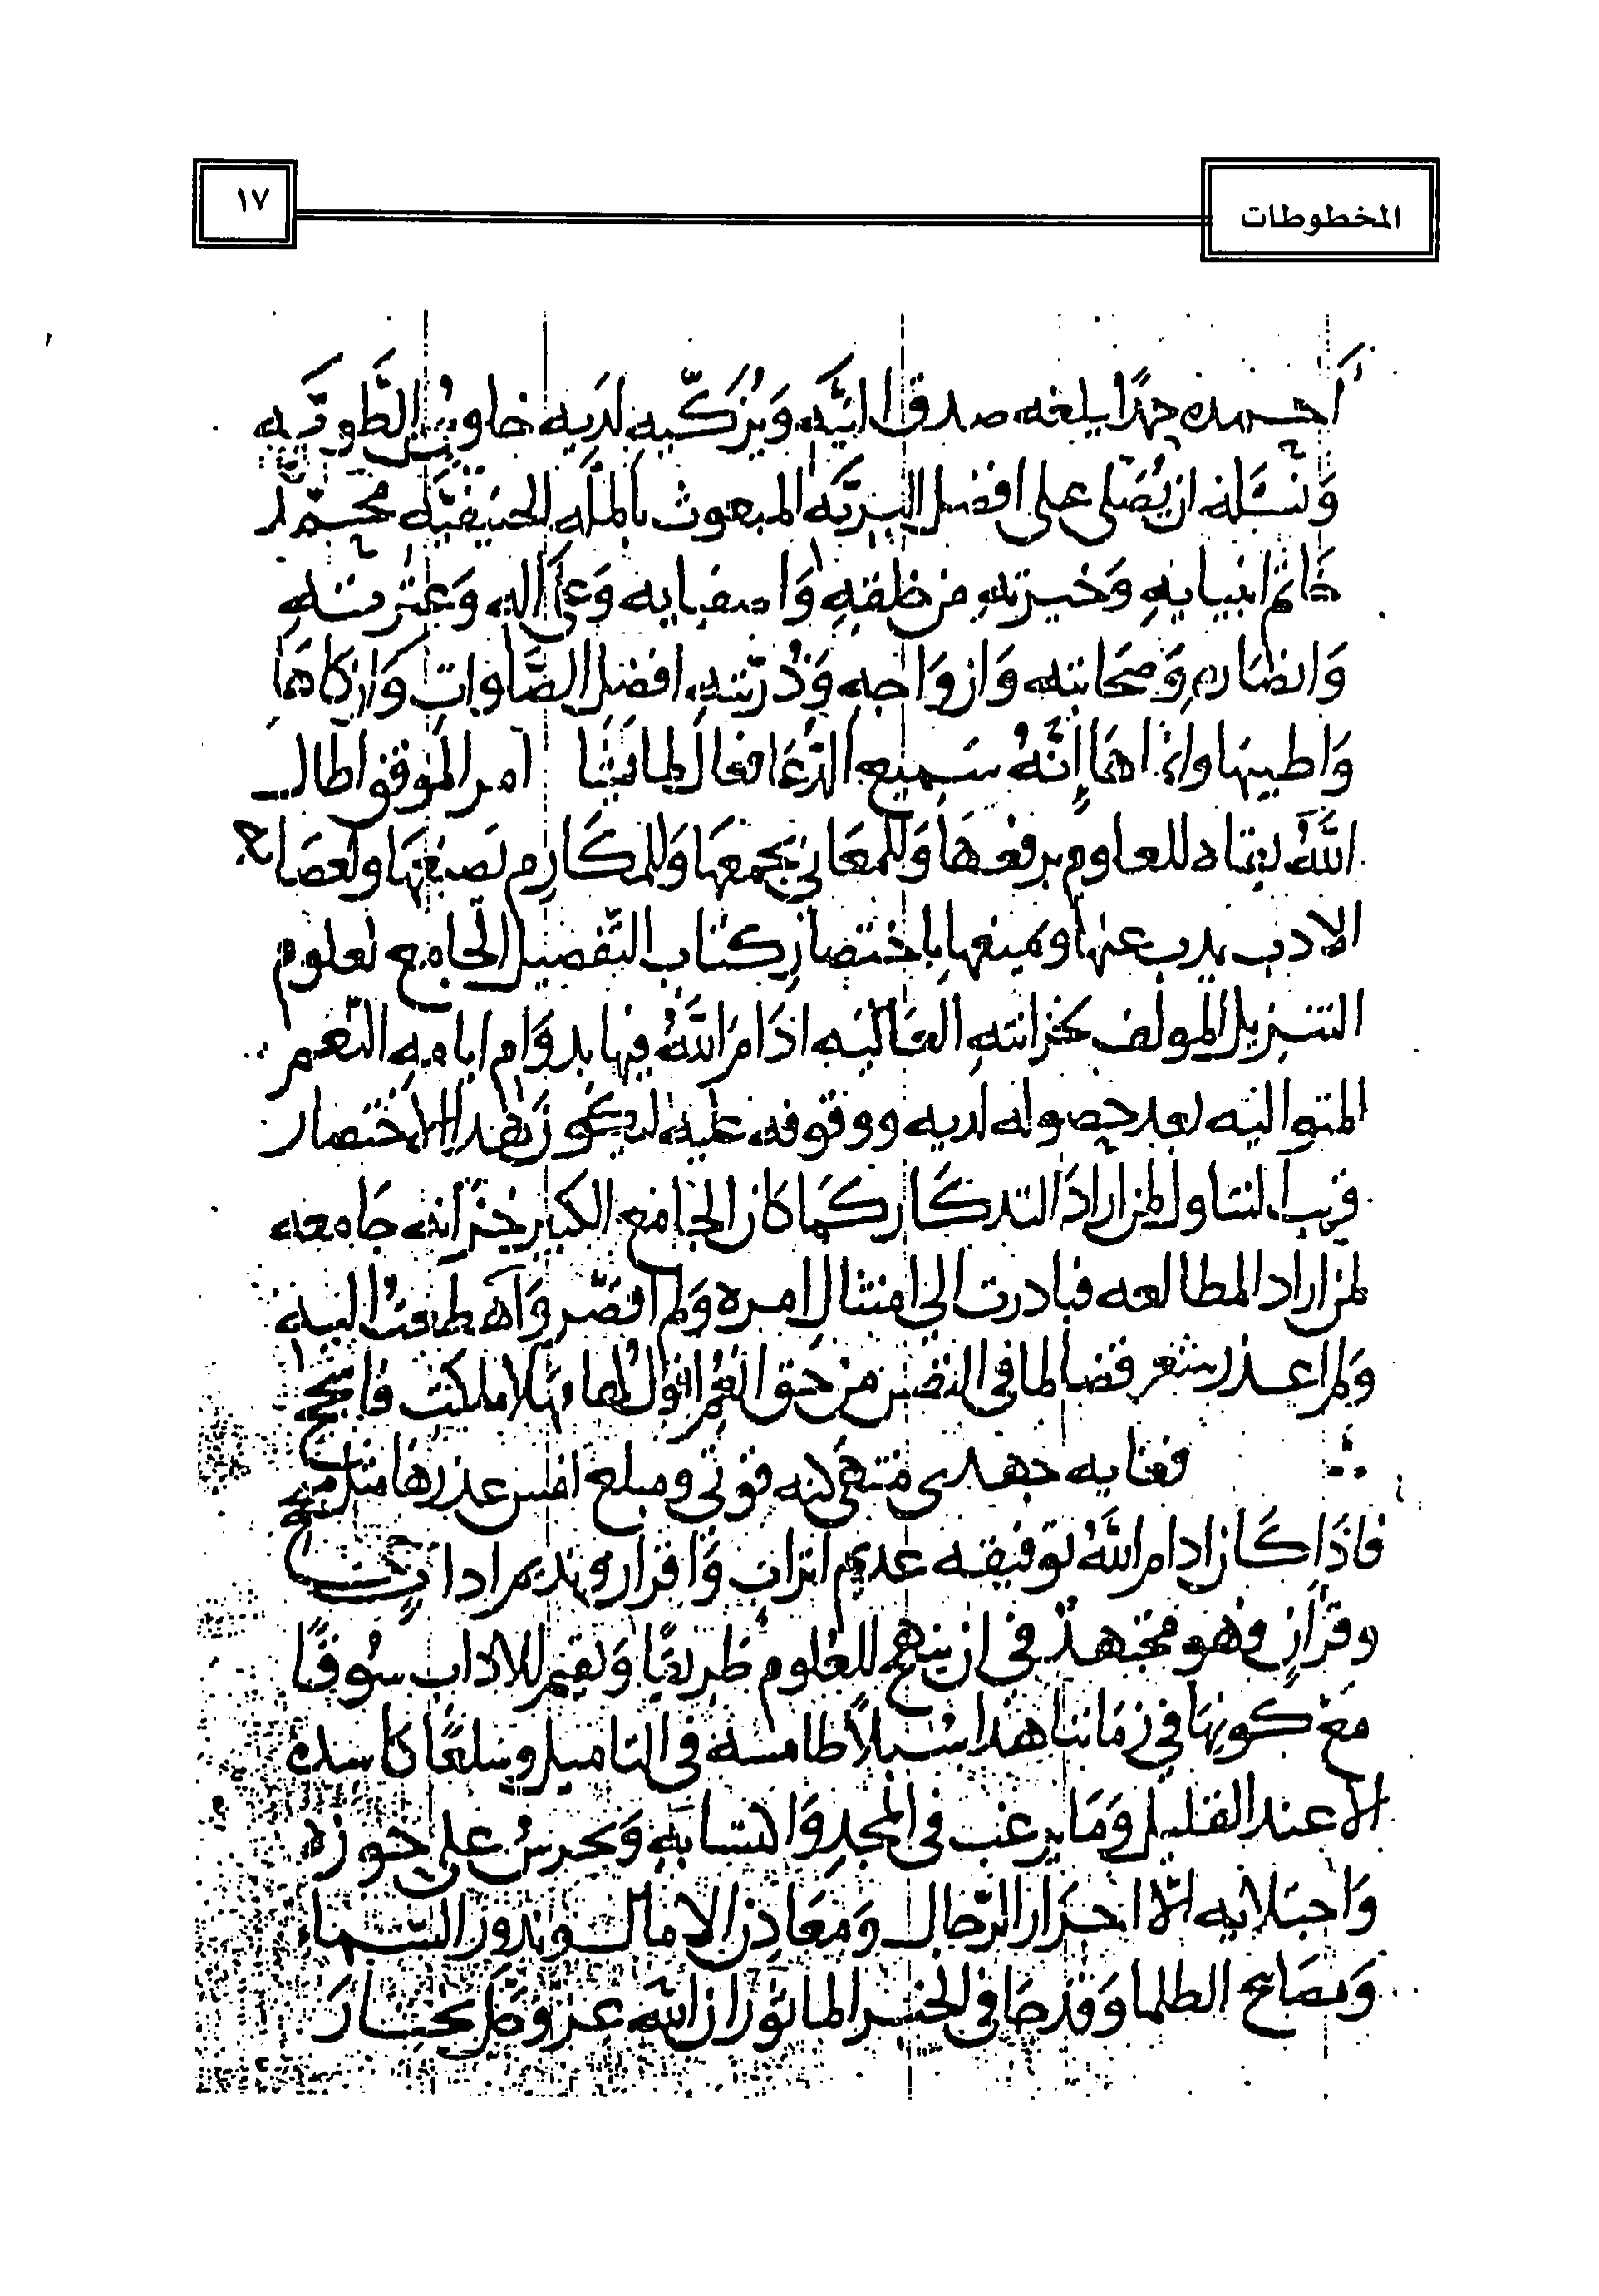 المخطوطات
١٧
أحمده حمدًا يبلغه صدق النيّه وَيُزكّيه لديه خلوص الطويّه
وَنسئله ان يُصَلى على افضل البريّه المبعوث بالملّه الحنيفيّه محمّد
خَاتم انبيايهِ وَخيرتهِ من خلقهِ وَاصفيايه وَعلى آله وَعترتهِ
وَانصَاره وَصحابته وَازوَاجه وَذُرّيّته افضل الصَّلوات وَازكاهَا
وَاطيبهَا وانماهَا إنّهُ سَميع الدّعَا فعال لما يشا امر الموفق اطال
اللَّهُ بقاه للعلوم يرفعهَا وَللمعَانى يجمعهَا وَللمكَارم يصَنعهَا ولعصَابه
الادب يذب عنها ويمنعها باختصار كتاب التّفصيل الجامع لعلوم
التنزيل المولف لخزانتهِ العَاليه ادَامَ اللَّهُ فيها بدوَام ايامه النّعم
المتواليه بعد حصوله لديه ووقوفه عليه ليكون هَذا الاختصار
قريب التناول لمن ارادَ التذكَار كمَا كان الجامع الكبير خزَانه جَامعه
لمن اراد المطالعه فبادرت الى امتثال امره وَلم اقصّر وَانعطفتُ اليه
وَلم اعذر شعر فضالما فى النفس من حَق العُمر اقول لها مهلا ملكت فاسجح
فغايه جهدى منتهَى كنه قوتى ومبلغ نفس عذرها مثل منجح
فاذَا كَان ادام اللَّهُ توفيقه عديم اتراب وَاقران ونديم اداب
وقرَان فهو مجتهدٌ فى ان ينهج للعُلوم طريقًا وَيقيم للاداب سُوقًا
مَعَ كونهَا فى زمَاننا هذا سُبلاً طامسه فى التاميل وسلعًا كاسده
الا عند القليل وَمَا يرغب فى المجدِ وَاقتنايهِ وَيحرسُ على حوزه
وَاجتلابه الّا احرَار الرّجال وَمعَادن الامال وبدور السّماء
وَمصَابيح الظلما وَقد جَا فى الخبر الماثور ان اللَّه عز وَجَل يختار